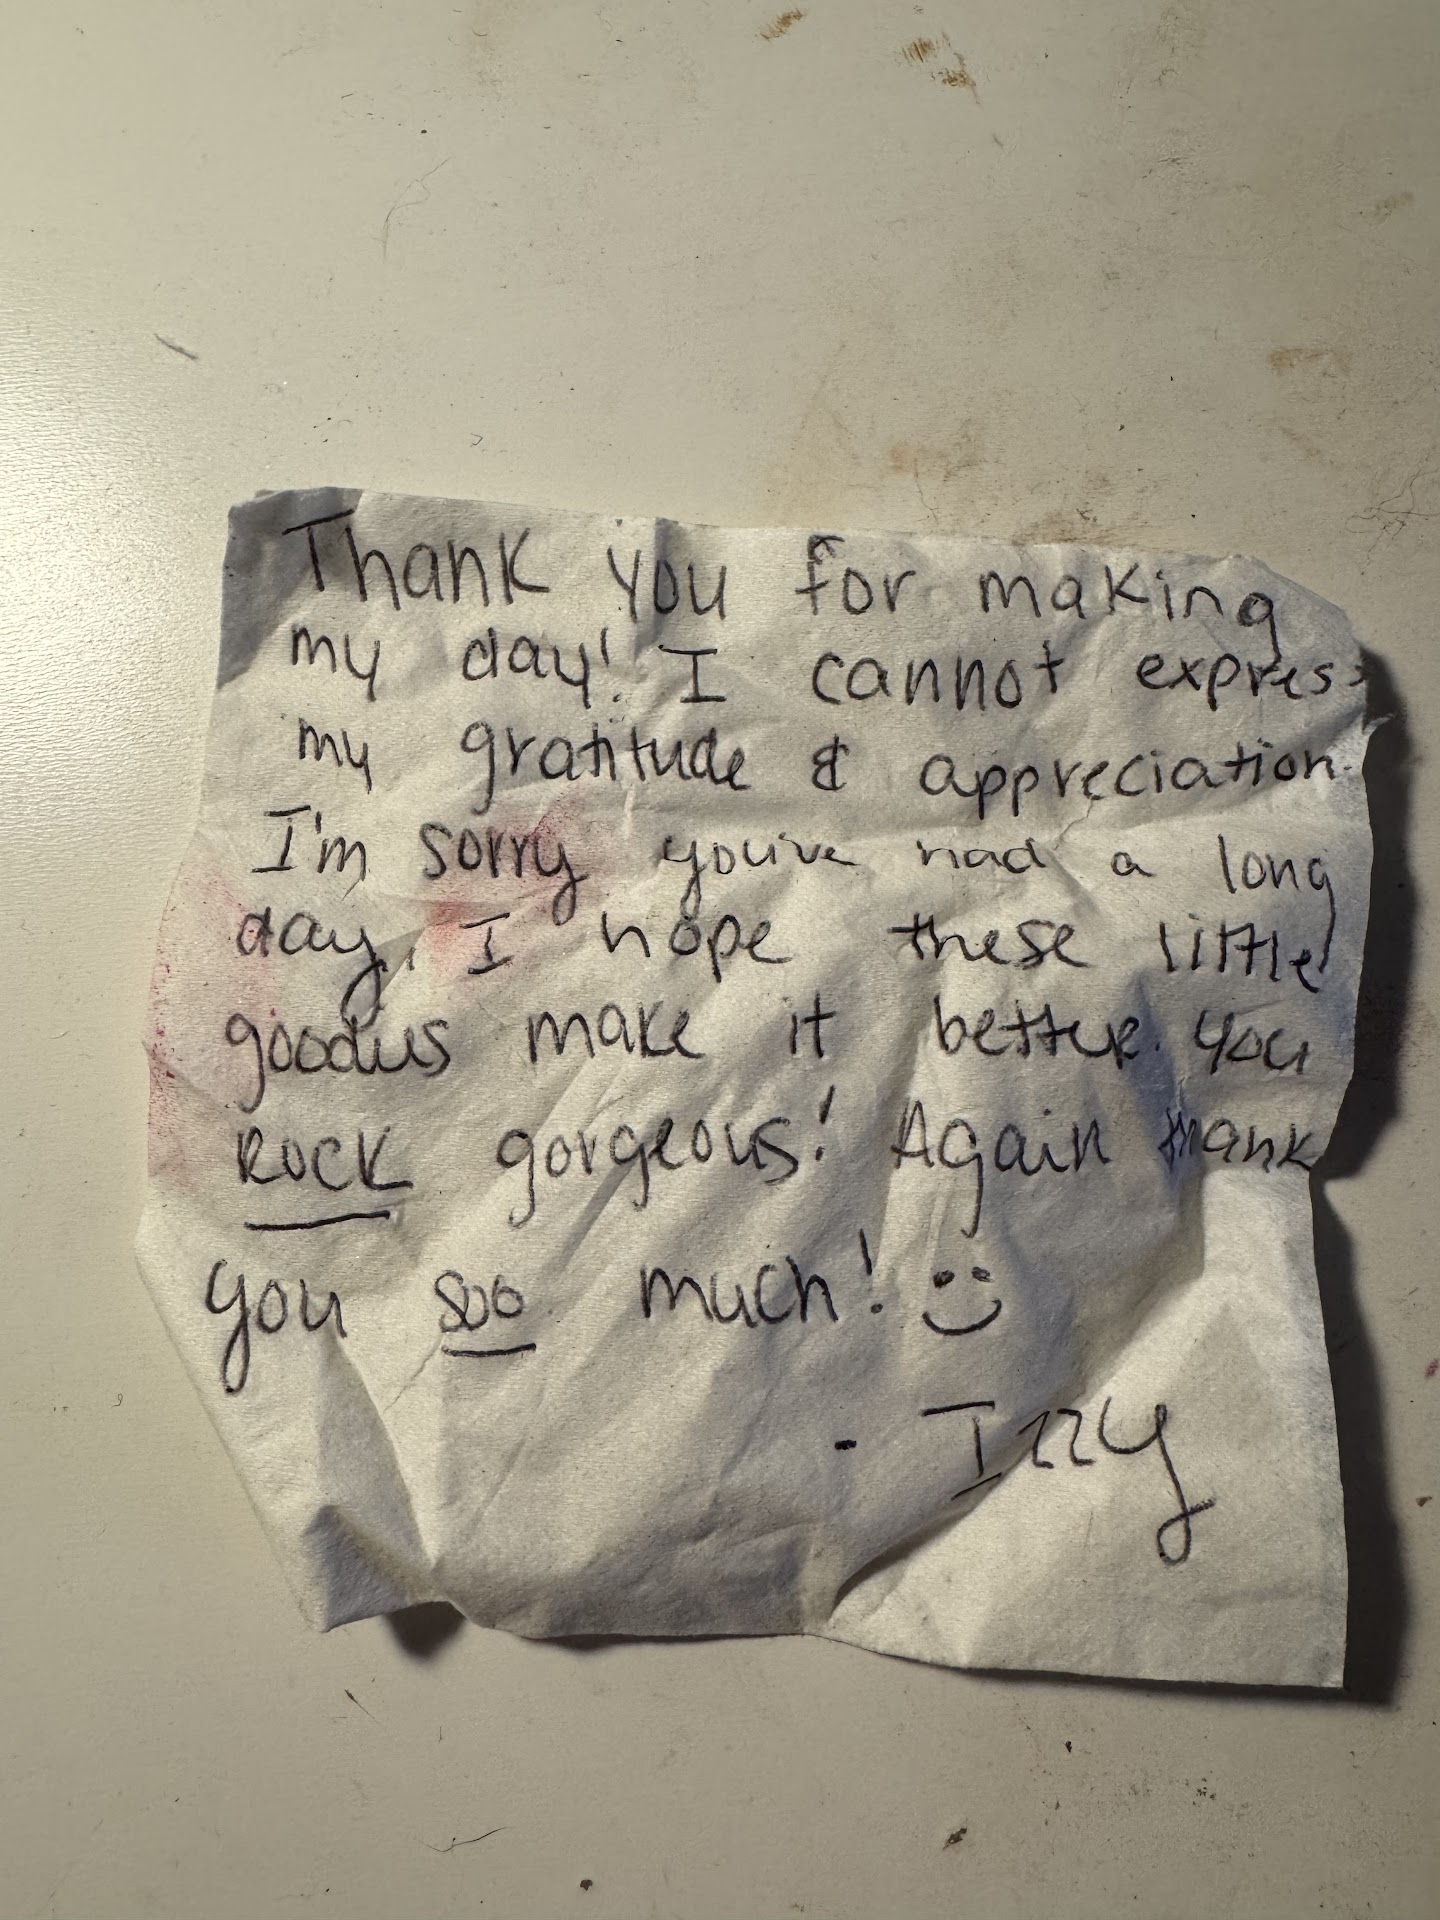 Thank you for making
my day! I cannot express
my gratitude & appreciation.
I'm sorry you've had a long
day, I hope these little
goodies make it better. You
ROCK gorgeous! Again thank
you soo much! :)
- Izzy